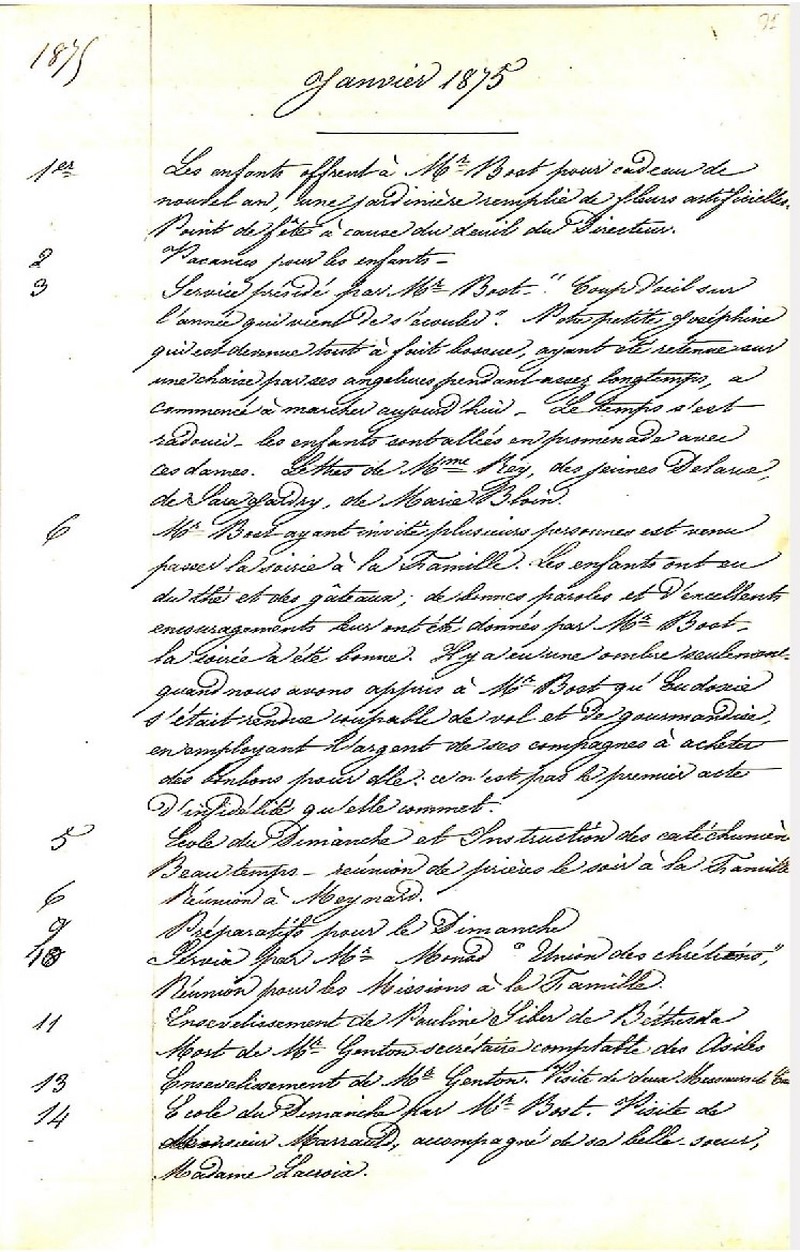 1875
Janvier 1875
1er Les enfants offrent à Mr Bost pour cadeau de
nouvel an, une jardinière remplie de fleurs artificielles.
Point de fête à cause du deuil du Directeur.
2 Vacances pour les enfants -
3 Service présidé par Mr Bost - "Coup d'oeil sur
l'année qui vient de s'écouler". Notre petite Joséphine
qui est devenue tout à fait bossue, ayant été retenue sur
une chaise par ses angelures pendant assez longtemps, a
commencé à marcher aujourd'hui - Le temps s'est
radouci - les enfants sont allées en promenade avec
ces dames. Lettres de Mme Rey, des jeunes
de Sara, de Marie Bloin.
6 Mr Bost ayant invité plusieurs personnes est venu
passer la soirée à la Famille. Les enfants ont eu
du thé et des gâteaux; de bonnes paroles et d'excellents
encouragements leur ont été donnés par Mr Bost -
la soirée a été bonne. Il y a eu une ombre seulement -
quand nous avons appris à Mr Bost qu'Eudoxie
s'était rendue coupable de vol et de gourmandise,
en employant l'argent de ses compagnes à acheter
des bonbons pour elle: ce n'est pas le premier acte
d'infidélité qu'elle commet.
5 Ecole du Dimanche et Instruction des catéchumèn
Beau temps - réunion de prières le soir à la Famille
6 Réunion à Meynard.
9 Préparatifs pour le Dimanche
10 Service par Mr Monod "Union des chrétiens,"
Réunion pour les Missions à la Famille.
11 Ensevelissement de Pauline Siler de Béthesda
Mort de Mr Genton secrétaire comptable des Asiles
13 Ensevelissement de Mr Genton. Visite de deux Messieurs de
14 Ecole du Dimanche par Mr Bost - Visite de
Monsieur Marrauld, accompagné de sa belle-soeur,
Madame Lacroix.